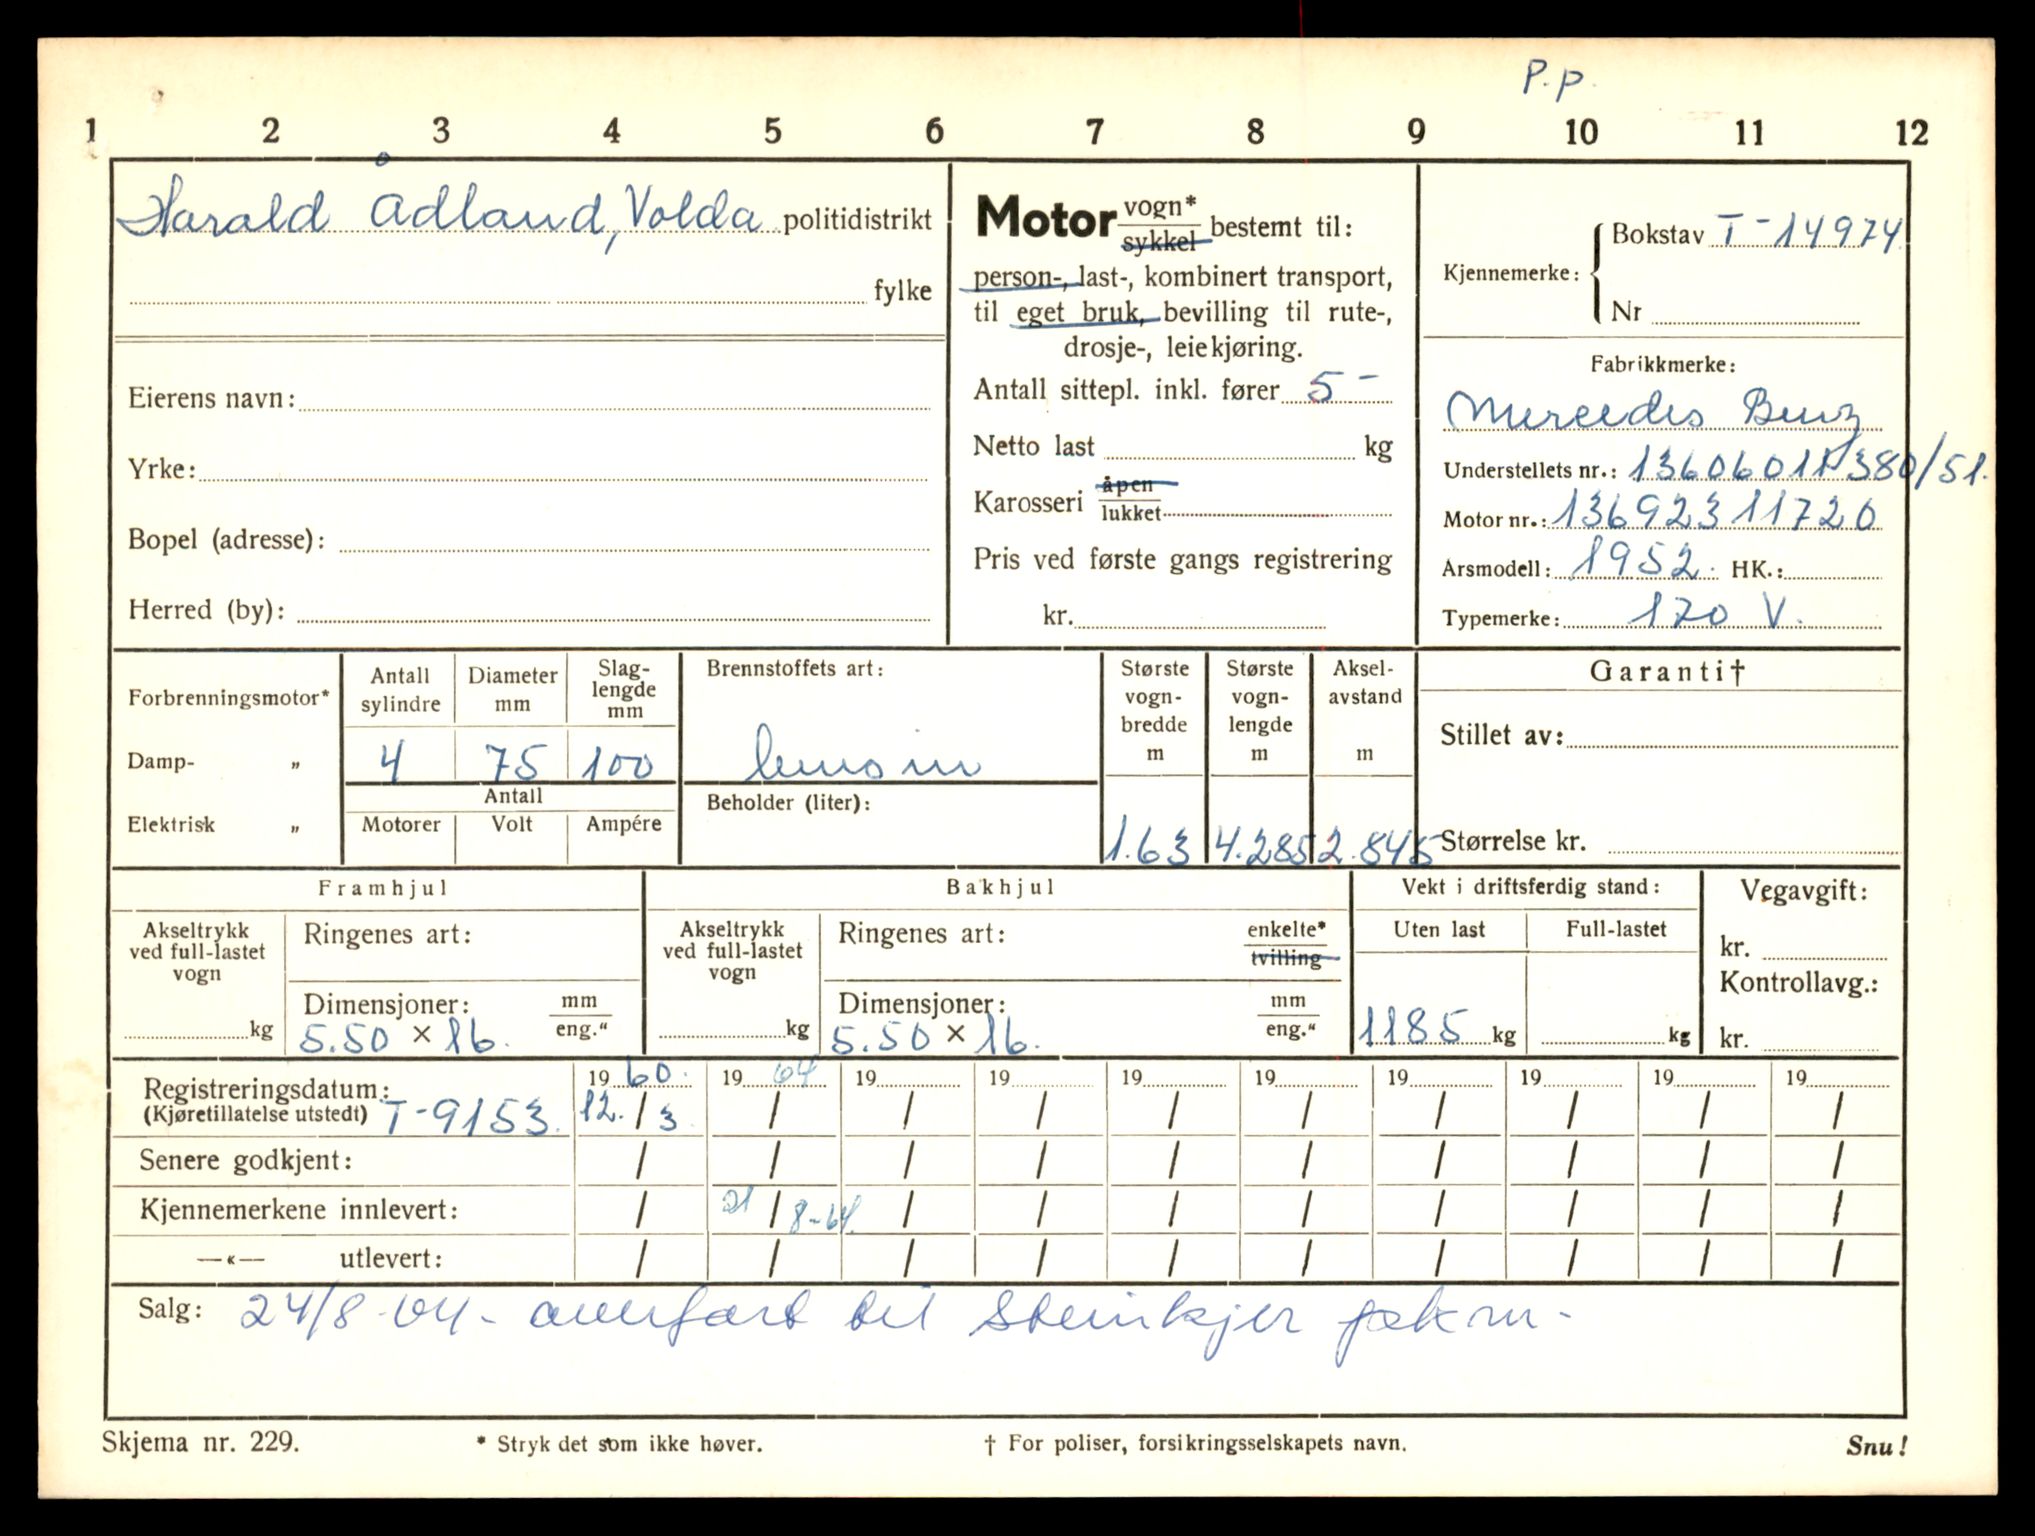 P.p.
1 2 3 4 5 6 7 8 9 10 11 12
Harald Ådland, Volda politidistrikt
fylke
Eierens navn:
Yrke:
Bopel (adresse):
Herred (by):
Motor vogn*
sykkel bestemt til:
person-, last-, kombinert transport,
til eget bruk, bevilling til rute-,
drosje-, leiekjøring.
Antall sittepl. inkl. fører 5 -
Netto last kg
Karosseri åpen
lukket
Pris ved første gangs registrering
kr.
Kjennemerke: Bokstav T-14974
Nr
Fabrikkmerke:
Mercedes Benz
Understellets nr.: 380/51.
Motor nr.: 13692311720
Årsmodell: 1952. HK.:
Typemerke: 170 V.
Forbrenningsmotor*
Damp- „
Elektrisk „
Antall sylindre
Diameter mm
Slag-lengde mm
4 75 100
Antall
Motorer Volt Ampére
Brennstoffets art:
bensin
Beholder (liter):
Største vogn-bredde m
Største vogn-lengde m
Aksel-avstand m
1.63 4.285 2.845
Garanti†
Stillet av:
Størrelse kr.
Framhjul
Akseltrykk
ved full-lastet
vogn
kg
Ringenes art:
Dimensjoner: mm
5.50 × 16. eng.“
Bakhjul
Akseltrykk
ved full-lastet
vogn
kg
Ringenes art: enkelte*
tvilling
Dimensjoner: mm
5.50 × 16. eng.“
Vekt i driftsferdig stand:
Uten last Full-lastet
1185 kg kg
Vegavgift:
kr.
Kontrollavg.:
kr.
Registreringsdatum: 19 60. 19 64 19 19 19 19 19 19 19 19
(Kjøretillatelse utstedt) T-9153. 12. / 3 / / / / / / / / /
Senere godkjent: / / / / / / / / / /
Kjennemerkene innlevert: / 21 / 8-64. / / / / / / / /
—«— utlevert: / / / / / / / / / /
Salg: 24/8-64 - overført til Steinkjer
Skjema nr. 229. * Stryk det som ikke høver. † For poliser, forsikringsselskapets navn. Snu!